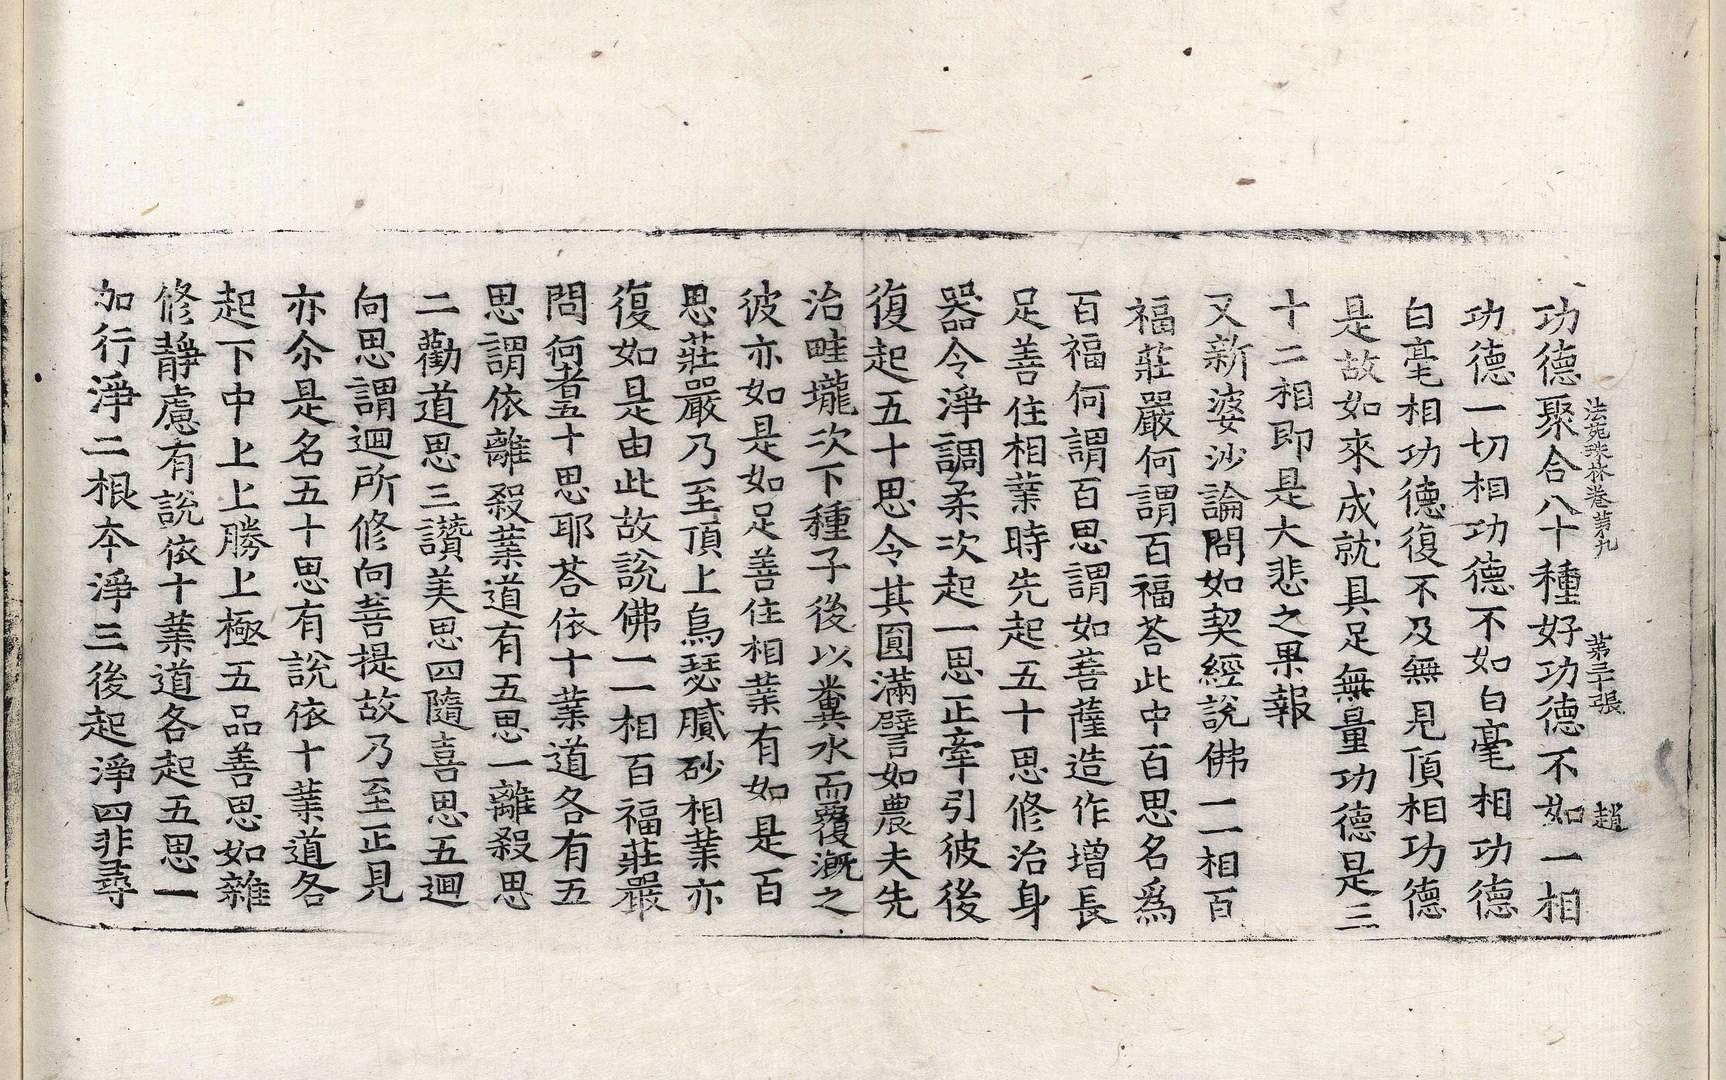 法苑珠林卷第九　第三十張　趙
功德聚合八十種好功德不如一相
功德一切相功德不如白毫相功德
白毫相功德復不及無見頂相功德
是故如來成就具足無量功德是三
十二相即是大悲之果報
又新婆沙論問如契經說佛一一相百
福莊嚴何謂百福荅此中百思名爲
百福何謂百思謂如菩薩造作增長
足善住相業時先起五十思修治身
器令淨調柔次起一思正牽引彼後
復起五十思令其圓滿譬如農夫先
治畦壠次下種子後以糞水而覆溉之
彼亦如是如足善住相業有如是百
思莊嚴乃至頂上烏瑟膩砂相業亦
復如是由此故說佛一一相百福莊嚴
問何者五十思耶荅依十業道各有五
思謂依離殺業道有五思一離殺思
二勸道思三讚美思四隨喜思五迴
向思謂迴所修向菩提故乃至正見
亦尒是名五十思有說依十業道各
起下中上上勝上極五品善思如雜
修靜慮有說依十業道各起五思一
加行淨二根本淨三後起淨四非尋